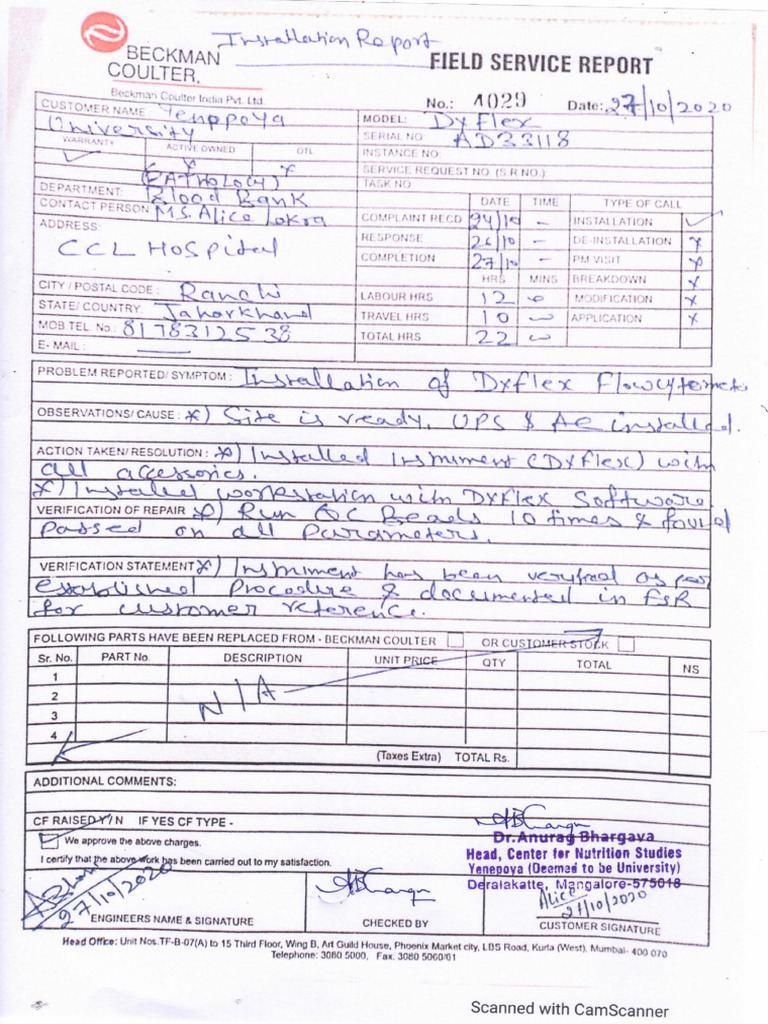 Installation Report
BECKMAN
COULTER.
FIELD SERVICE REPORT
Beckman Coulter India Pvt. Ltd.
No.: 4029 Date: 27/10/2020
CUSTOMER NAME Yenppoya
University
MODEL: DxFlex
SERIAL NO AD33118
WARRANTY ACTIVE OWNED OTL
✓ x x
INSTANCE NO:
SERVICE REQUEST NO. (S.R NO.)
TASK NO
(PATHOLOGY)
DEPARTMENT: Blood Bank
CONTACT PERSON: Ms. Alice Lakra
ADDRESS:
CCL Hospital
CITY / POSTAL CODE : Ranchi
STATE/ COUNTRY: Jaharkhand
MOB.TEL. No.: 8178312538
E- MAIL :
DATE TIME TYPE OF CALL
COMPLAINT RECD 24/10 – INSTALLATION ✓
RESPONSE 26/10 – DE-INSTALLATION x
COMPLETION 27/10 – PM VISIT x
HRS MINS BREAKDOWN x
LABOUR HRS 12 MODIFICATION x
TRAVEL HRS 10 APPLICATION x
TOTAL HRS 22
PROBLEM REPORTED/ SYMPTOM : Installation of Dxflex Flowcytometer
OBSERVATIONS/ CAUSE : *) Site is ready, UPS & AC installed.
ACTION TAKEN/ RESOLUTION : *) Installed Instrument (DxFlex) with
all accessories.
*) Installed workstation with DxFlex Software.
VERIFICATION OF REPAIR *) Run QC Beads 10 times & found
passed on all Parameters.
VERIFICATION STATEMENT *) Instrument has been verified as per
established Procedure & documented in FSR
for customer reference.
FOLLOWING PARTS HAVE BEEN REPLACED FROM - BECKMAN COULTER OR CUSTOMER STOCK
Sr. No. PART No. DESCRIPTION UNIT PRICE QTY TOTAL NS
1
2
3
4
N/A
(Taxes Extra) TOTAL Rs.
ADDITIONAL COMMENTS:
CF RAISED Y/ N IF YES CF TYPE -
We approve the above charges.
I certify that the above work has been carried out to my satisfaction.
Dr.Anurag Bhargava
Head, Center for Nutrition Studies
Yenepoya (Deemed to be University)
Deralakatte, Mangalore-575018
27/10/2020
Alice
27/10/2020
ENGINEERS NAME & SIGNATURE
CHECKED BY
CUSTOMER SIGNATURE
Head Office: Unit Nos.TF-B-07(A) to 15 Third Floor, Wing B, Art Guild House, Phoenix Market city, LBS Road, Kurla (West). Mumbai- 400 070
Telephone: 3080 5000, Fax. 3080 5060/61
Scanned with CamScanner